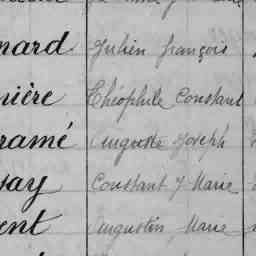 nard Julien françois
nière Théophile Constant
ramé Auguste Joseph
say Constant J Marie
ent Augustin Marie